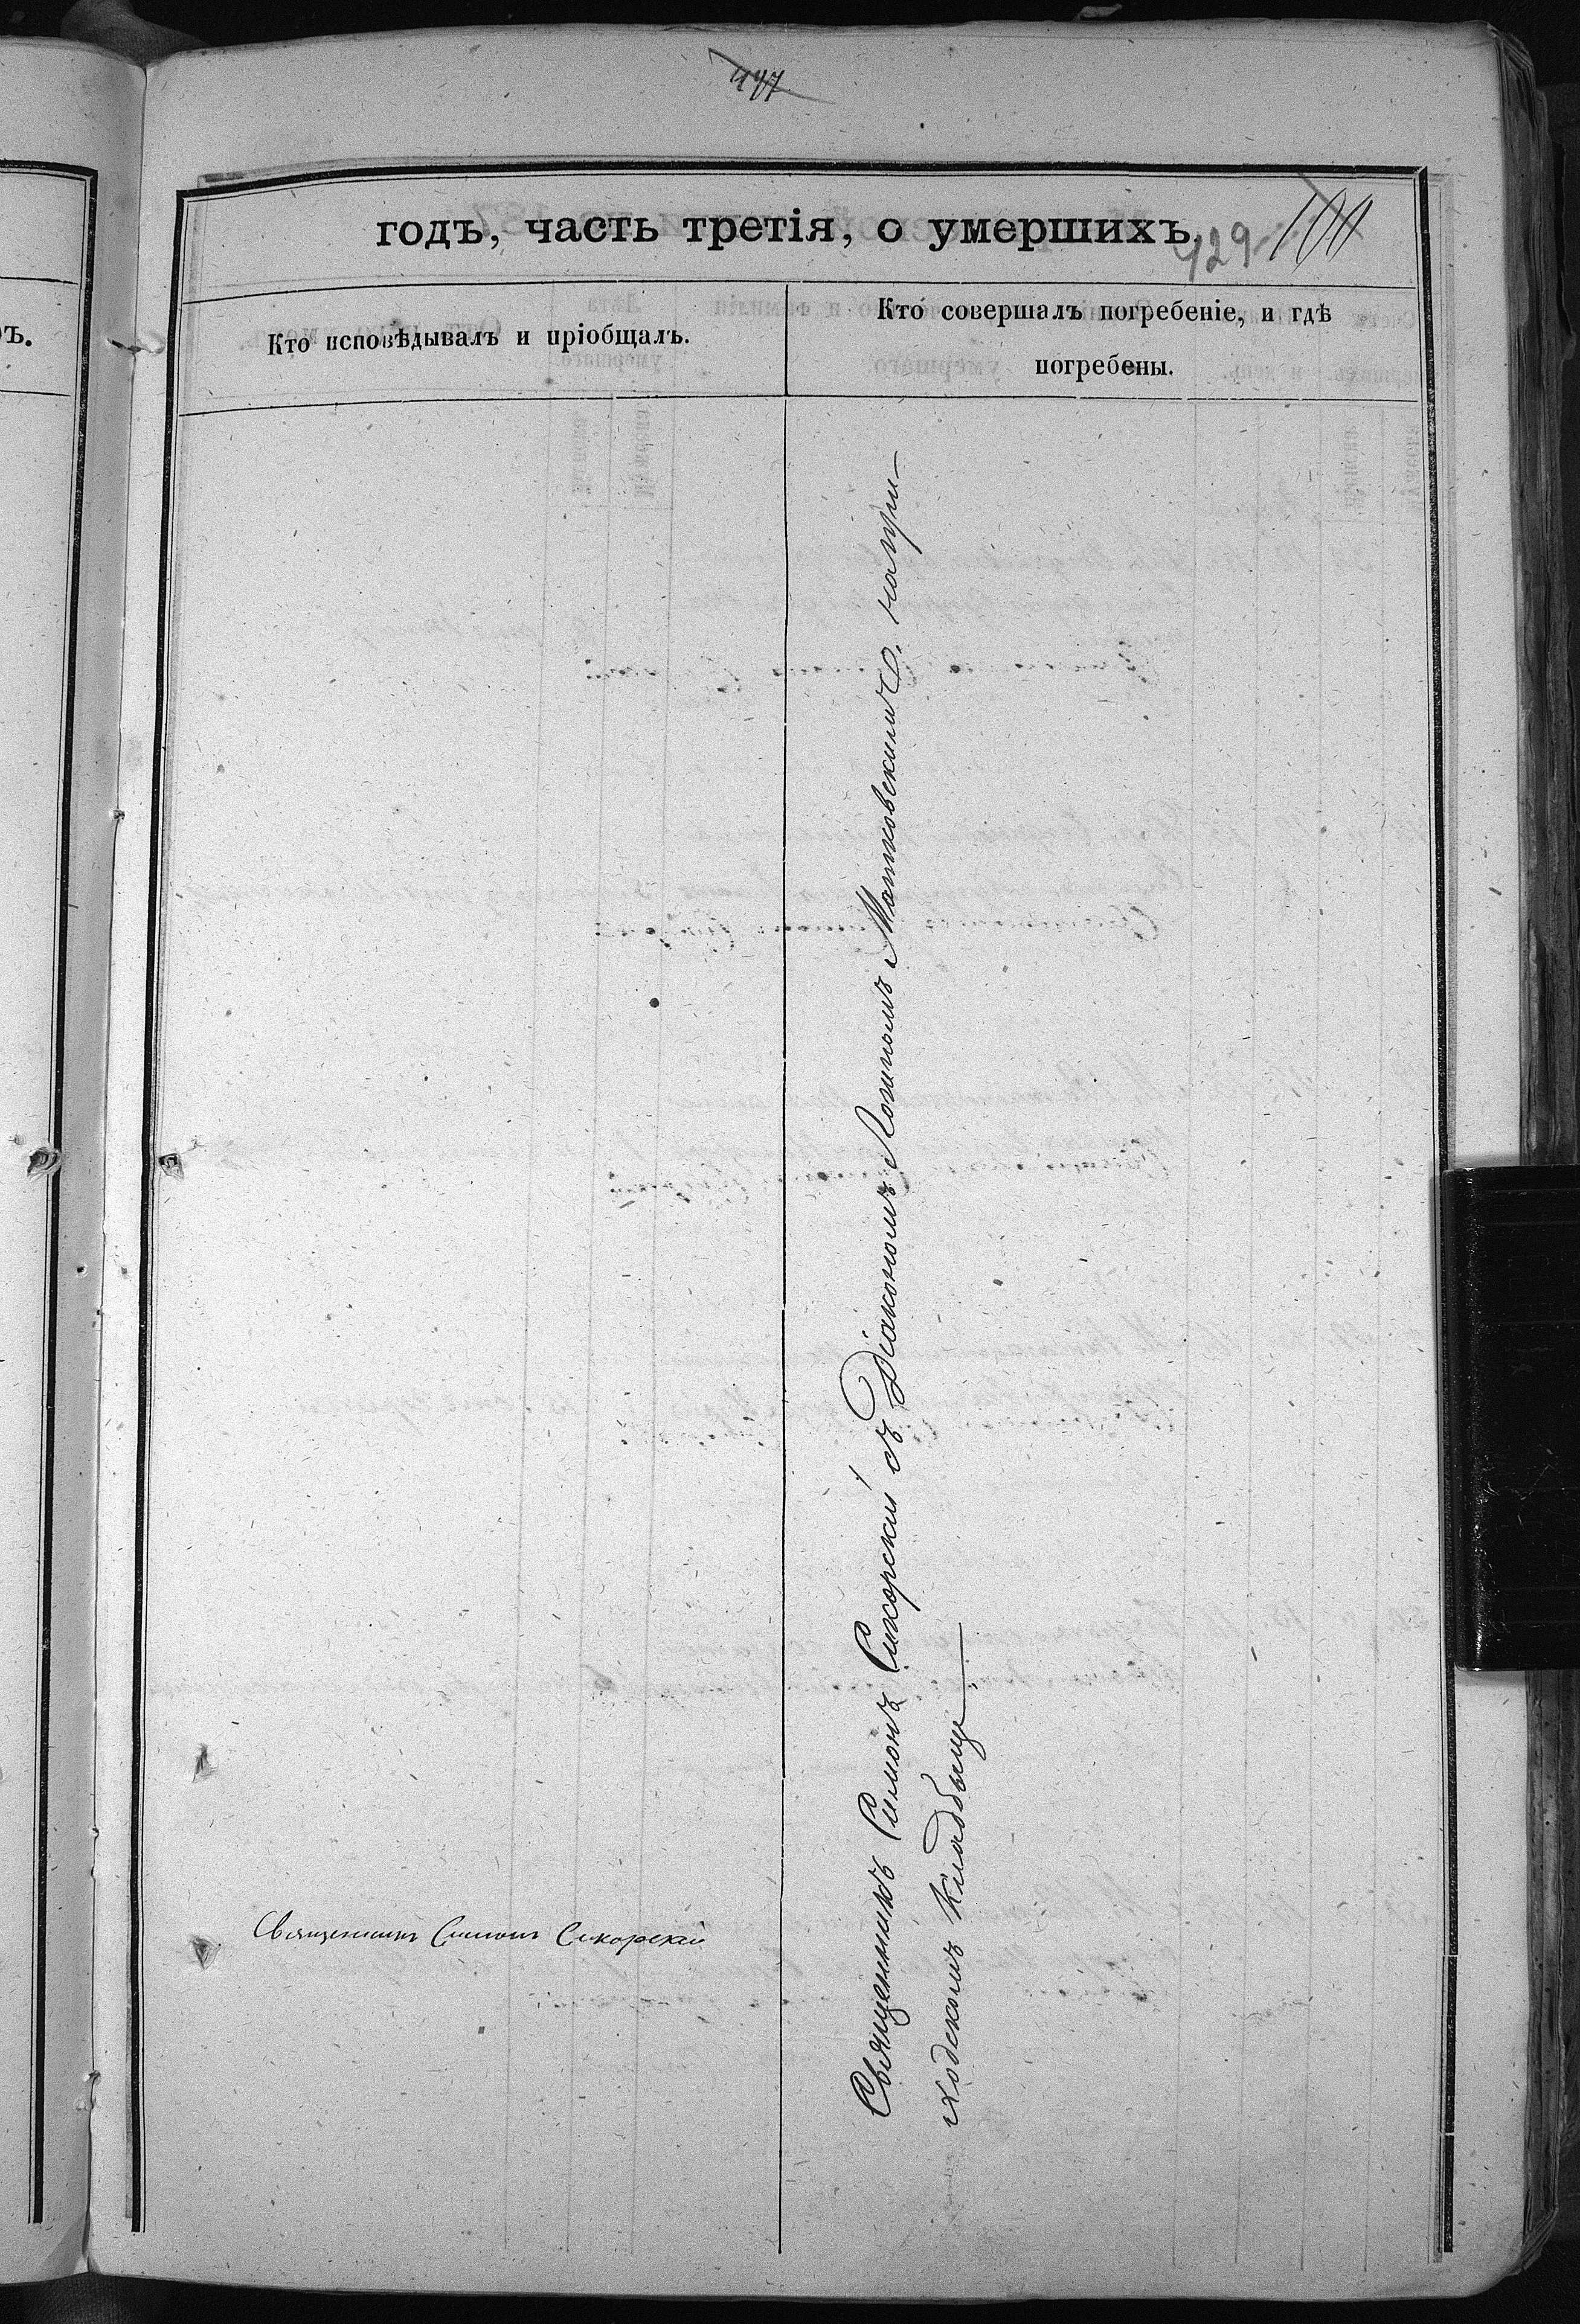 497
годъ, часть третія, о умершихъ.
429 100
Кто исповѣдывалъ и пріобщалъ.
Кто совершалъ погребеніе, и гдѣ
погребены.
ъ.
Священникъ Симонъ Сикорскій
Священникъ Симонъ Сикорскій съ Діакономъ Лонгиномъ Матковскимъ, на при-
ходскомъ кладбищѣ.